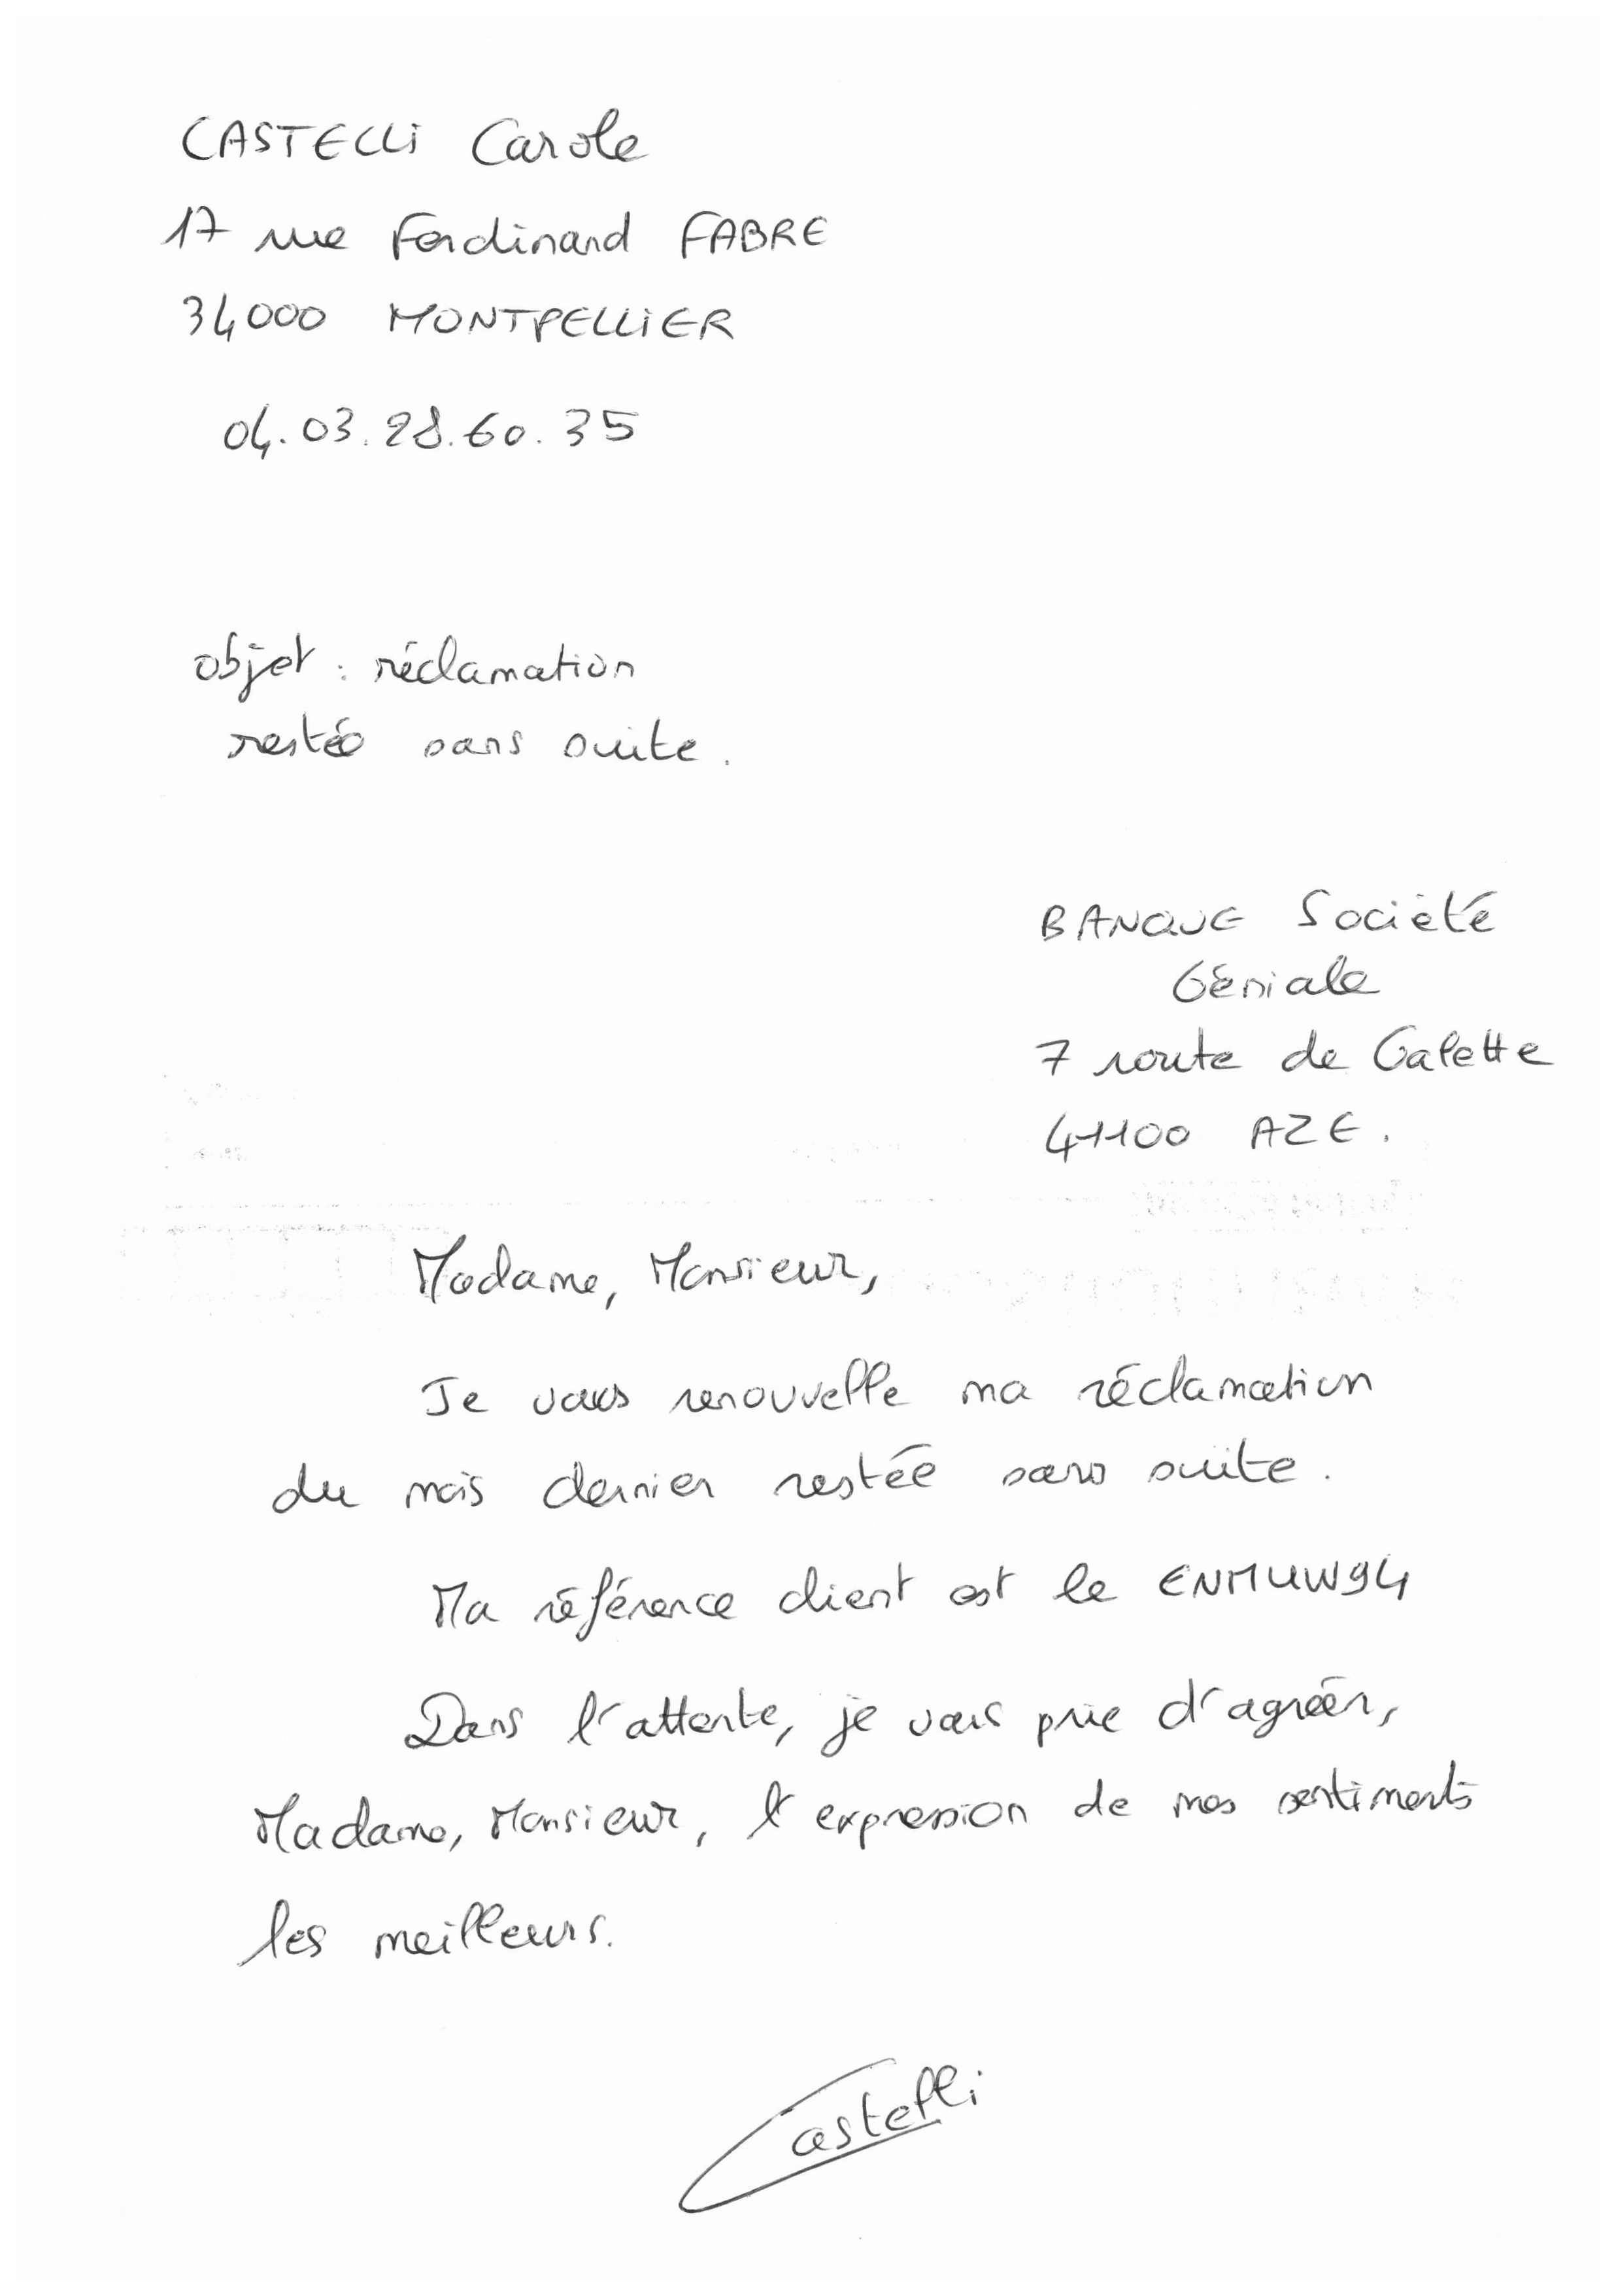 CASTELLI Carole
17 rue Ferdinand FABRE
34000 MONTPELLIER
04.03.28.60.35
objet : réclamation
restée sans suite.
BANQUE Société
Géniale
7 route de Galette
41100 AZE.
Madame, Monsieur,
Je vous renouvelle ma réclamation
du mois dernier restée sans suite.
Ma référence client est le ENMUW94
Dans l'attente, je vous prie d'agréér,
Madame, Monsieur, l'expression de mes sentiments
les meilleurs.
Castelli